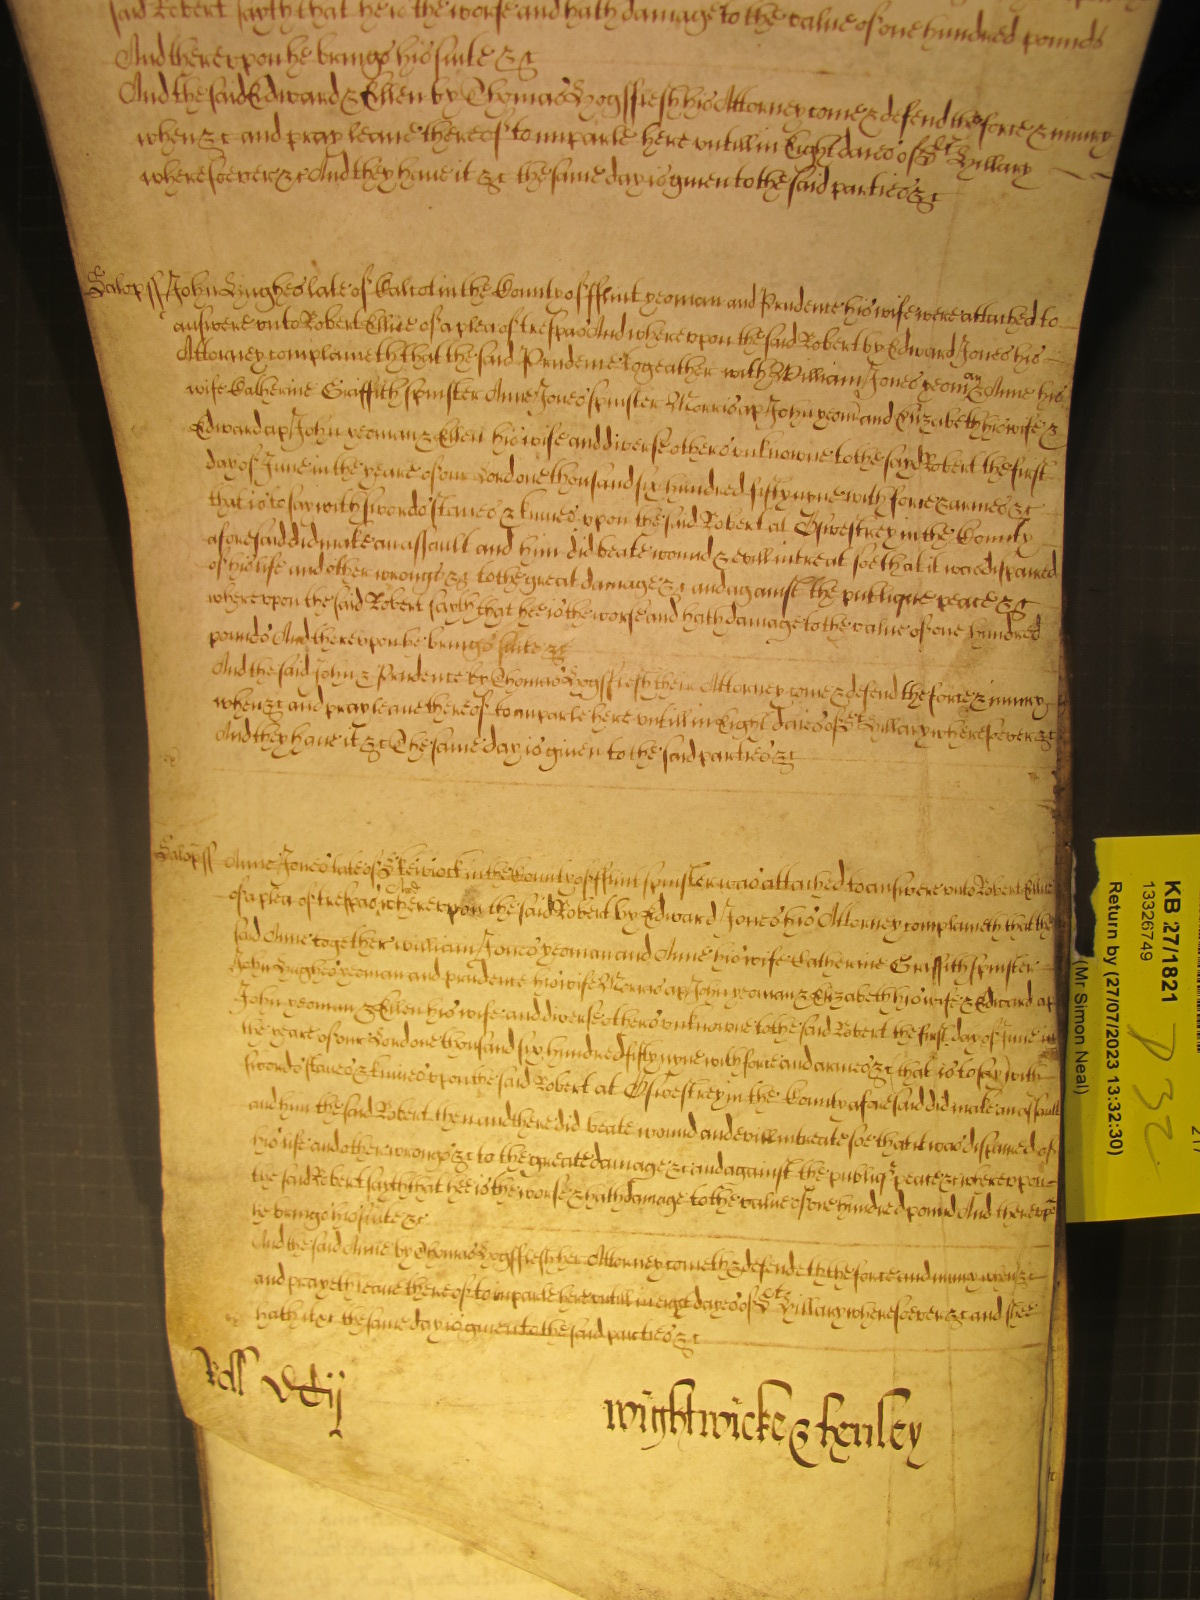 said Robert sayth that he is the worse and hath damage to the value of one hundred pounds
And thereupon he brings his suite &c
And the said Edward & Ellen by Thomas Hogffiesh his Attorney come & defend the force & iniury
when &c and pray leaue thereof to imparle here vntill in Eight daies of St Hillary
wheresoever &c And they haue it &c the same day is giuen to the said parties &c
Salop ss John Hughes late of in the County of fflint yeoman and Prudence his wife were attached to
answere vnto Robert Ellice of a plea of trespas And whereupon the said Robert by Edward Jones his
Attorney complaineth that the said Prudence togeather with William Jones yeoman Anne his
wife Catherine Griffith spinster Anne Jones spinster Morris ap John yeom and Elizabeth his wife &
Edward ap John yeoman & Ellen his wife and diverse others vnknowne to the sayd Robert the first
day of June in the yeare of our Lord one thousand six hundred fifty nyne with force & armes &c
that is to say with swords staues & kniues vpon the said Robert at Oswestrey in the County
aforesaid did make an assault and him did beate wound & evill intreat soe that it was dispaired
of his life and other wrongs &c to the great damage &c and against the publique peace &c
whereupon the said Robert sayth that hee is the worse and hath damage to the value of one hundred
pounds And thereupon he brings suite &c
And the said John & Prudence by Thomas Hogffiesh their Attorney come & defend the force & iniury
when &c and pray leaue thereof to imparle here vntill in Eight daies of St Hillary wheresoever &c
And they haue it &c The same day is giuen to the said parties &c
Salop ss Anne Jones late of in the County of fflint spinster was attached to answere vnto Robert Ellice
of a plea of trespas And whereupon the said Robert by Edward Jones his Attorney complaineth that the
said Anne together william Jones yeoman and Anne his wife Catherine Griffith spinster
John Hughes yeoman and prudence his wife Morris ap John yeoman & Elizabeth his wife & Edward ap
John yeoman & Ellen his wife and diverse others vnknowne to the said Robert the first day of June in
the yeare of our Lord one thousand six hundred fifty nyne with force and armes &c that is to say with
swords staues & kniues vpon the said Robert at Oswestrey in the County aforesaid did make an assault
and him the said Robert then and there did beate wound and evill intreate soe that it was dispaired of
his life and other wrongs &c to the greate damage &c and against the publiq peace &c whereupon
the said Robert sayth that hee is the worse & hath damage to the value of one hundred pound And therevpo
he brings his suite &c
And the said Anne by Thomas Hogffiesh her Attorney cometh & defendeth the force and iniury when &c
and prayeth leaue thereof to imparle here vntill in eight dayes of St Hillary wheresoever &c and shee
hath it &c the same day is giuen to the said parties &c
Roll
Wightwicke & Henley
KB 27/1821
13326749
Return by (27/07/2023 13:32:30)
(Mr Simon Neal)
P 32